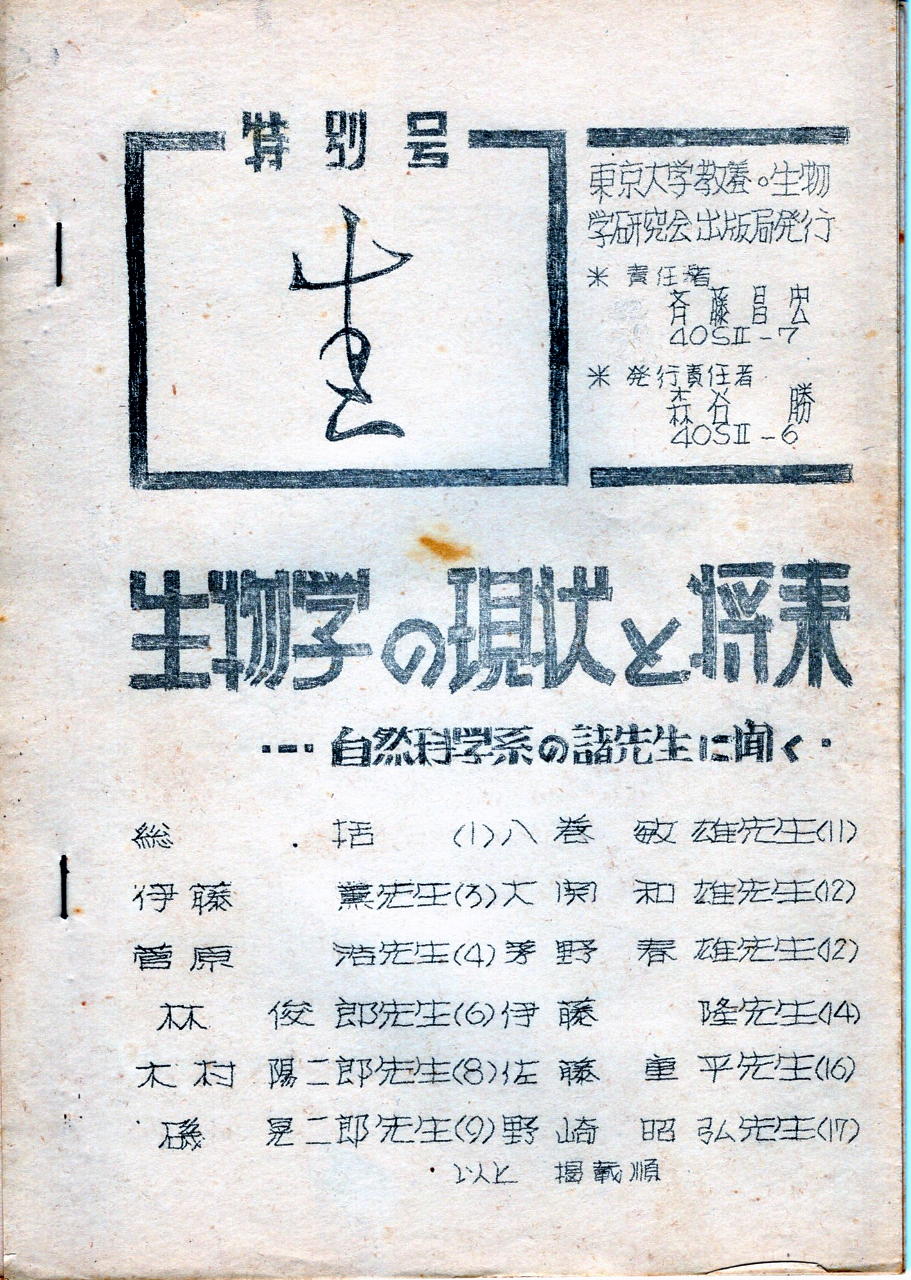 特別号
生
東京大学教養。生物
学研究会出版局発行
※ 責任者
斉藤昌宏
40SⅡ-7
※ 発行責任者
森谷 勝
40SⅡ-6
生物学の現状と将来
…自然科学系の諸先生に聞く・
総 括 (1) 八巻 敏雄先生(11)
伊藤 薫先生(3) 大関 和雄先生(12)
菅原 浩先生(4) 茅野 春雄先生(12)
林 俊郎先生(6) 伊藤 隆先生(14)
木村 陽二郎先生(8) 佐藤 重平先生(16)
磯 晃二郎先生(9) 野崎 昭弘先生(17)
以上 掲載順